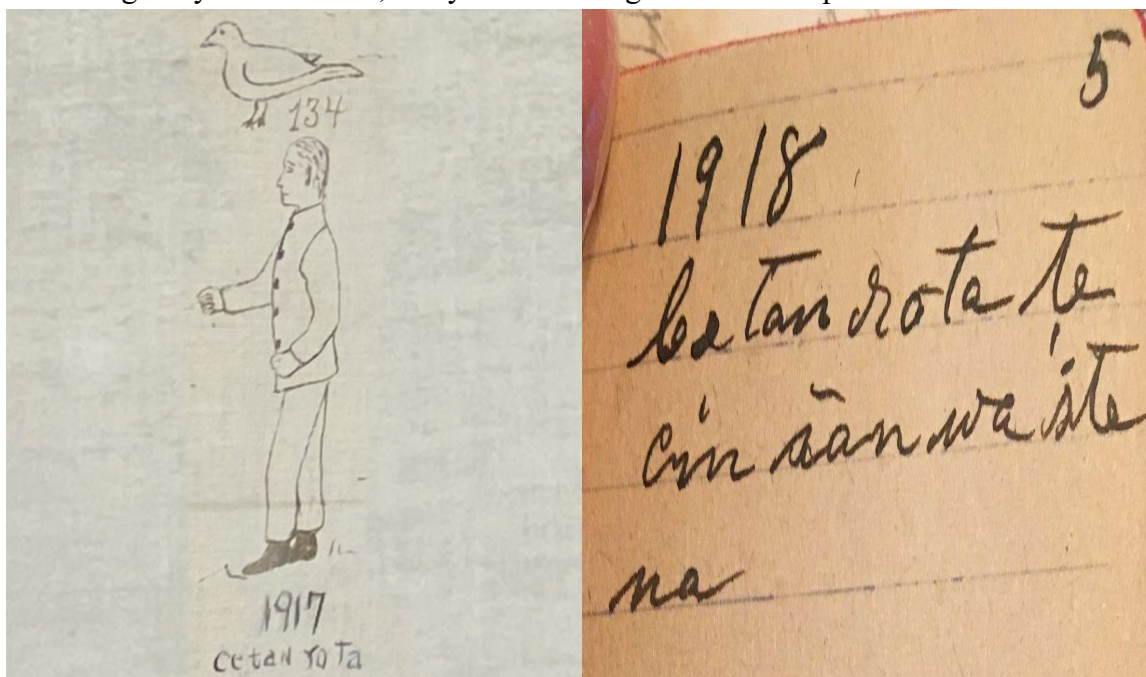 134
1917
cetan rota
5
1918
Cetan rota te
cin ċan waśte
na